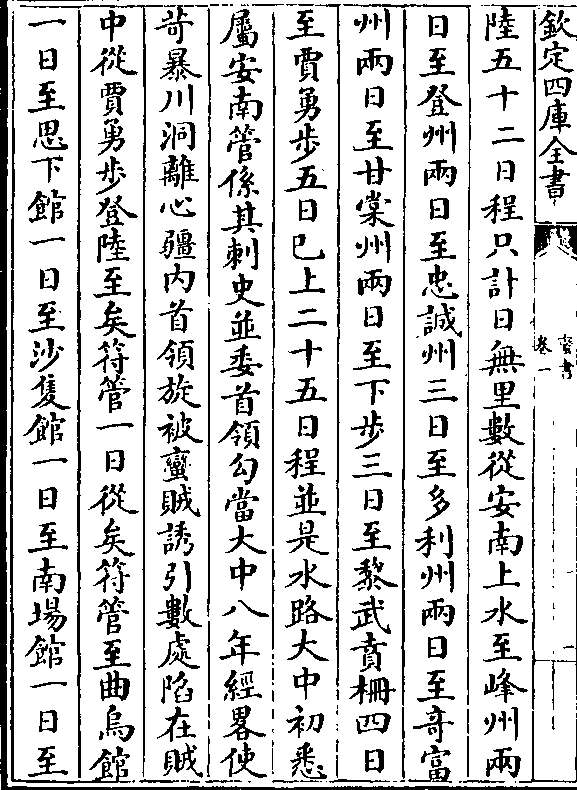 欽定四庫全書
蠻書
卷一
陸五十二日程只計日無里數從安南上水至峰州兩
日至登州兩日至忠誠州三日至多利州兩日至竒富
州兩日至甘棠州兩日至下步三日至黎武賁柵四日
至賈勇步五日已上二十五日程並是水路大中初悉
屬安南管係其刺史並委首領勾當大中八年經畧使
苛暴川洞離心疆内首領旋被蠻賊誘引數處陷在賊
中從賈勇步登陸至矣符管一日從矣符管至曲烏館
一日至思下館一日至沙隻館一日至南場館一日至